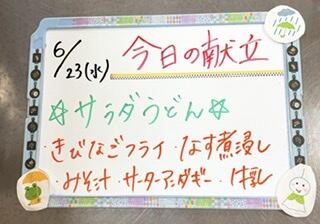 6/23(水)
今日の献立
☆サラダうどん☆
・きびなごフライ ・なす煮浸し
・みそ汁 ・サーターアンダギー ・牛乳